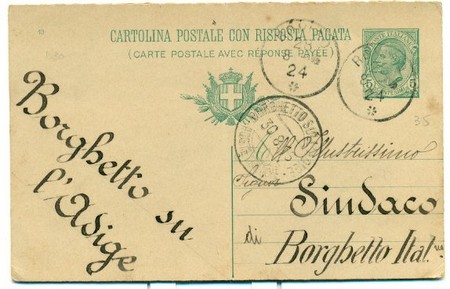 CARTOLINA POSTALE CON RISPOSTA PAGATA
(CARTE POSTALE AVEC RÉPONSE PAYÉE)
8
24
24
Borghetto su
l'Adige
Illustrissimo
Signor
Sindaco
di
Borghetto Ital.
35